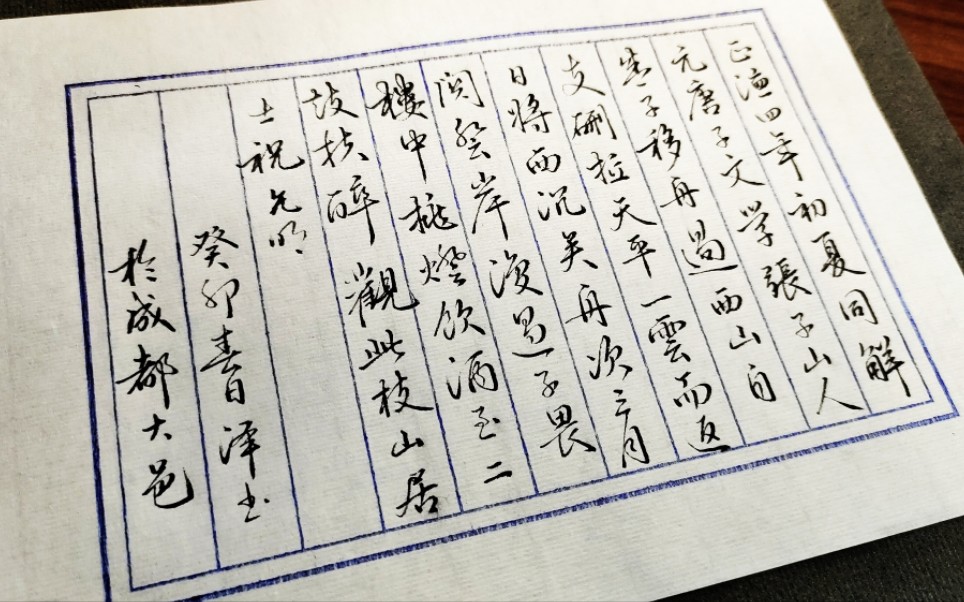 正德四年初夏同解
元唐子文学張子山人
凳子移舟過西山自
支硎拉天平一雲而返
日将西沉矣舟次三月
関登岸復過子畏
樓中挑燈飲酒至二
鼓扶醉觀此枝山居
士祝允明
癸卯春日泽书
於成都大邑